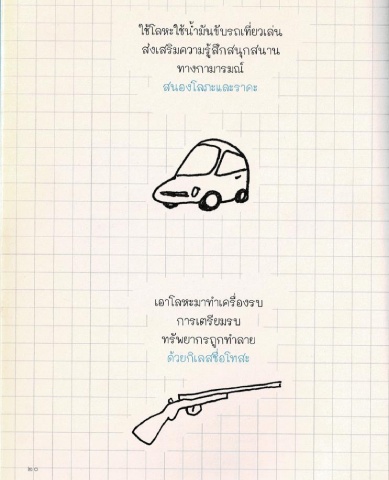 ใช้โลหะใช้น้ำมันขับรถเที่ยวเล่น
ส่งเสริมความรู้สึกสนุกสนาน
ทางกามารมณ์
สนองโลภะและราคะ
เอาโลหะมาทำเครื่องรบ
การเตรียมรบ
ทรัพยากรถูกทำลาย
ด้วยกิเลสชื่อโทสะ
๒๐